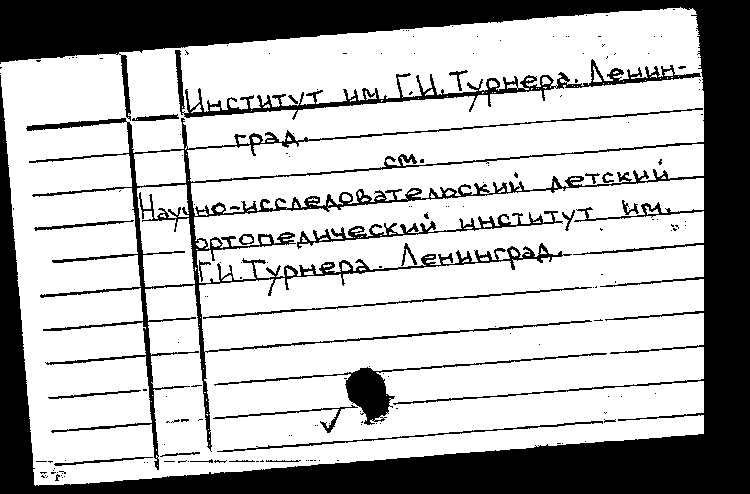 Институт им. Г.И. Турнера. Ленин-
град.
см.
Научно-исследовательский детский
ортопедический институт им.
Г.И. Турнера. Ленинград.